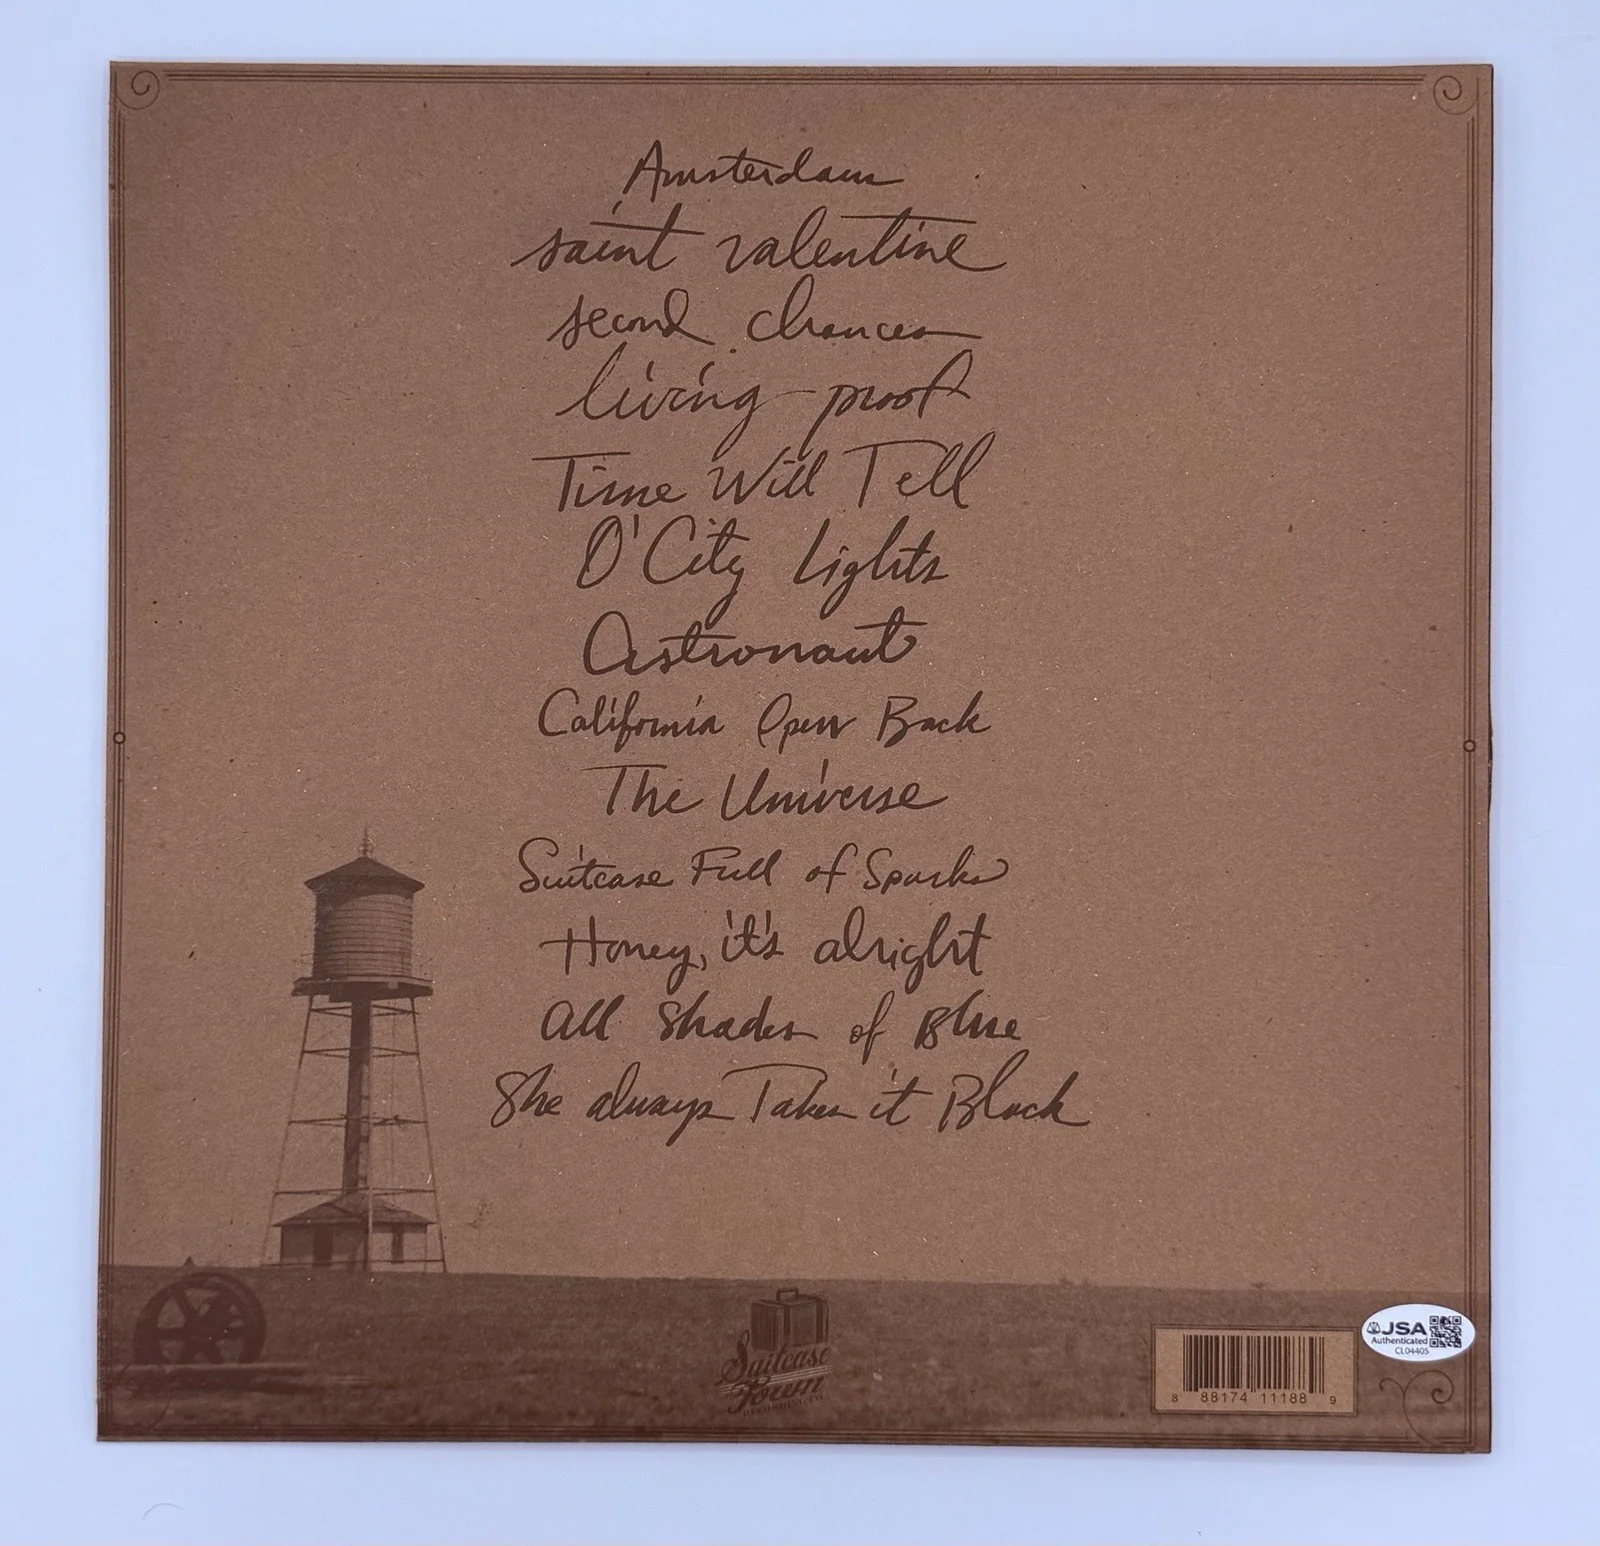 Amsterdam
saint valentine
second chances
living proof
Time Will Tell
O' City Lights
Astronaut
California Open Back
The Universe
Suitcase Full of Sparks
Honey, it's alright
All Shades of Blue
She always Takes it Black
Suitcase
Town
RECORDING CO.
8 88174 11188 9
JSA
Authenticated
CL04405